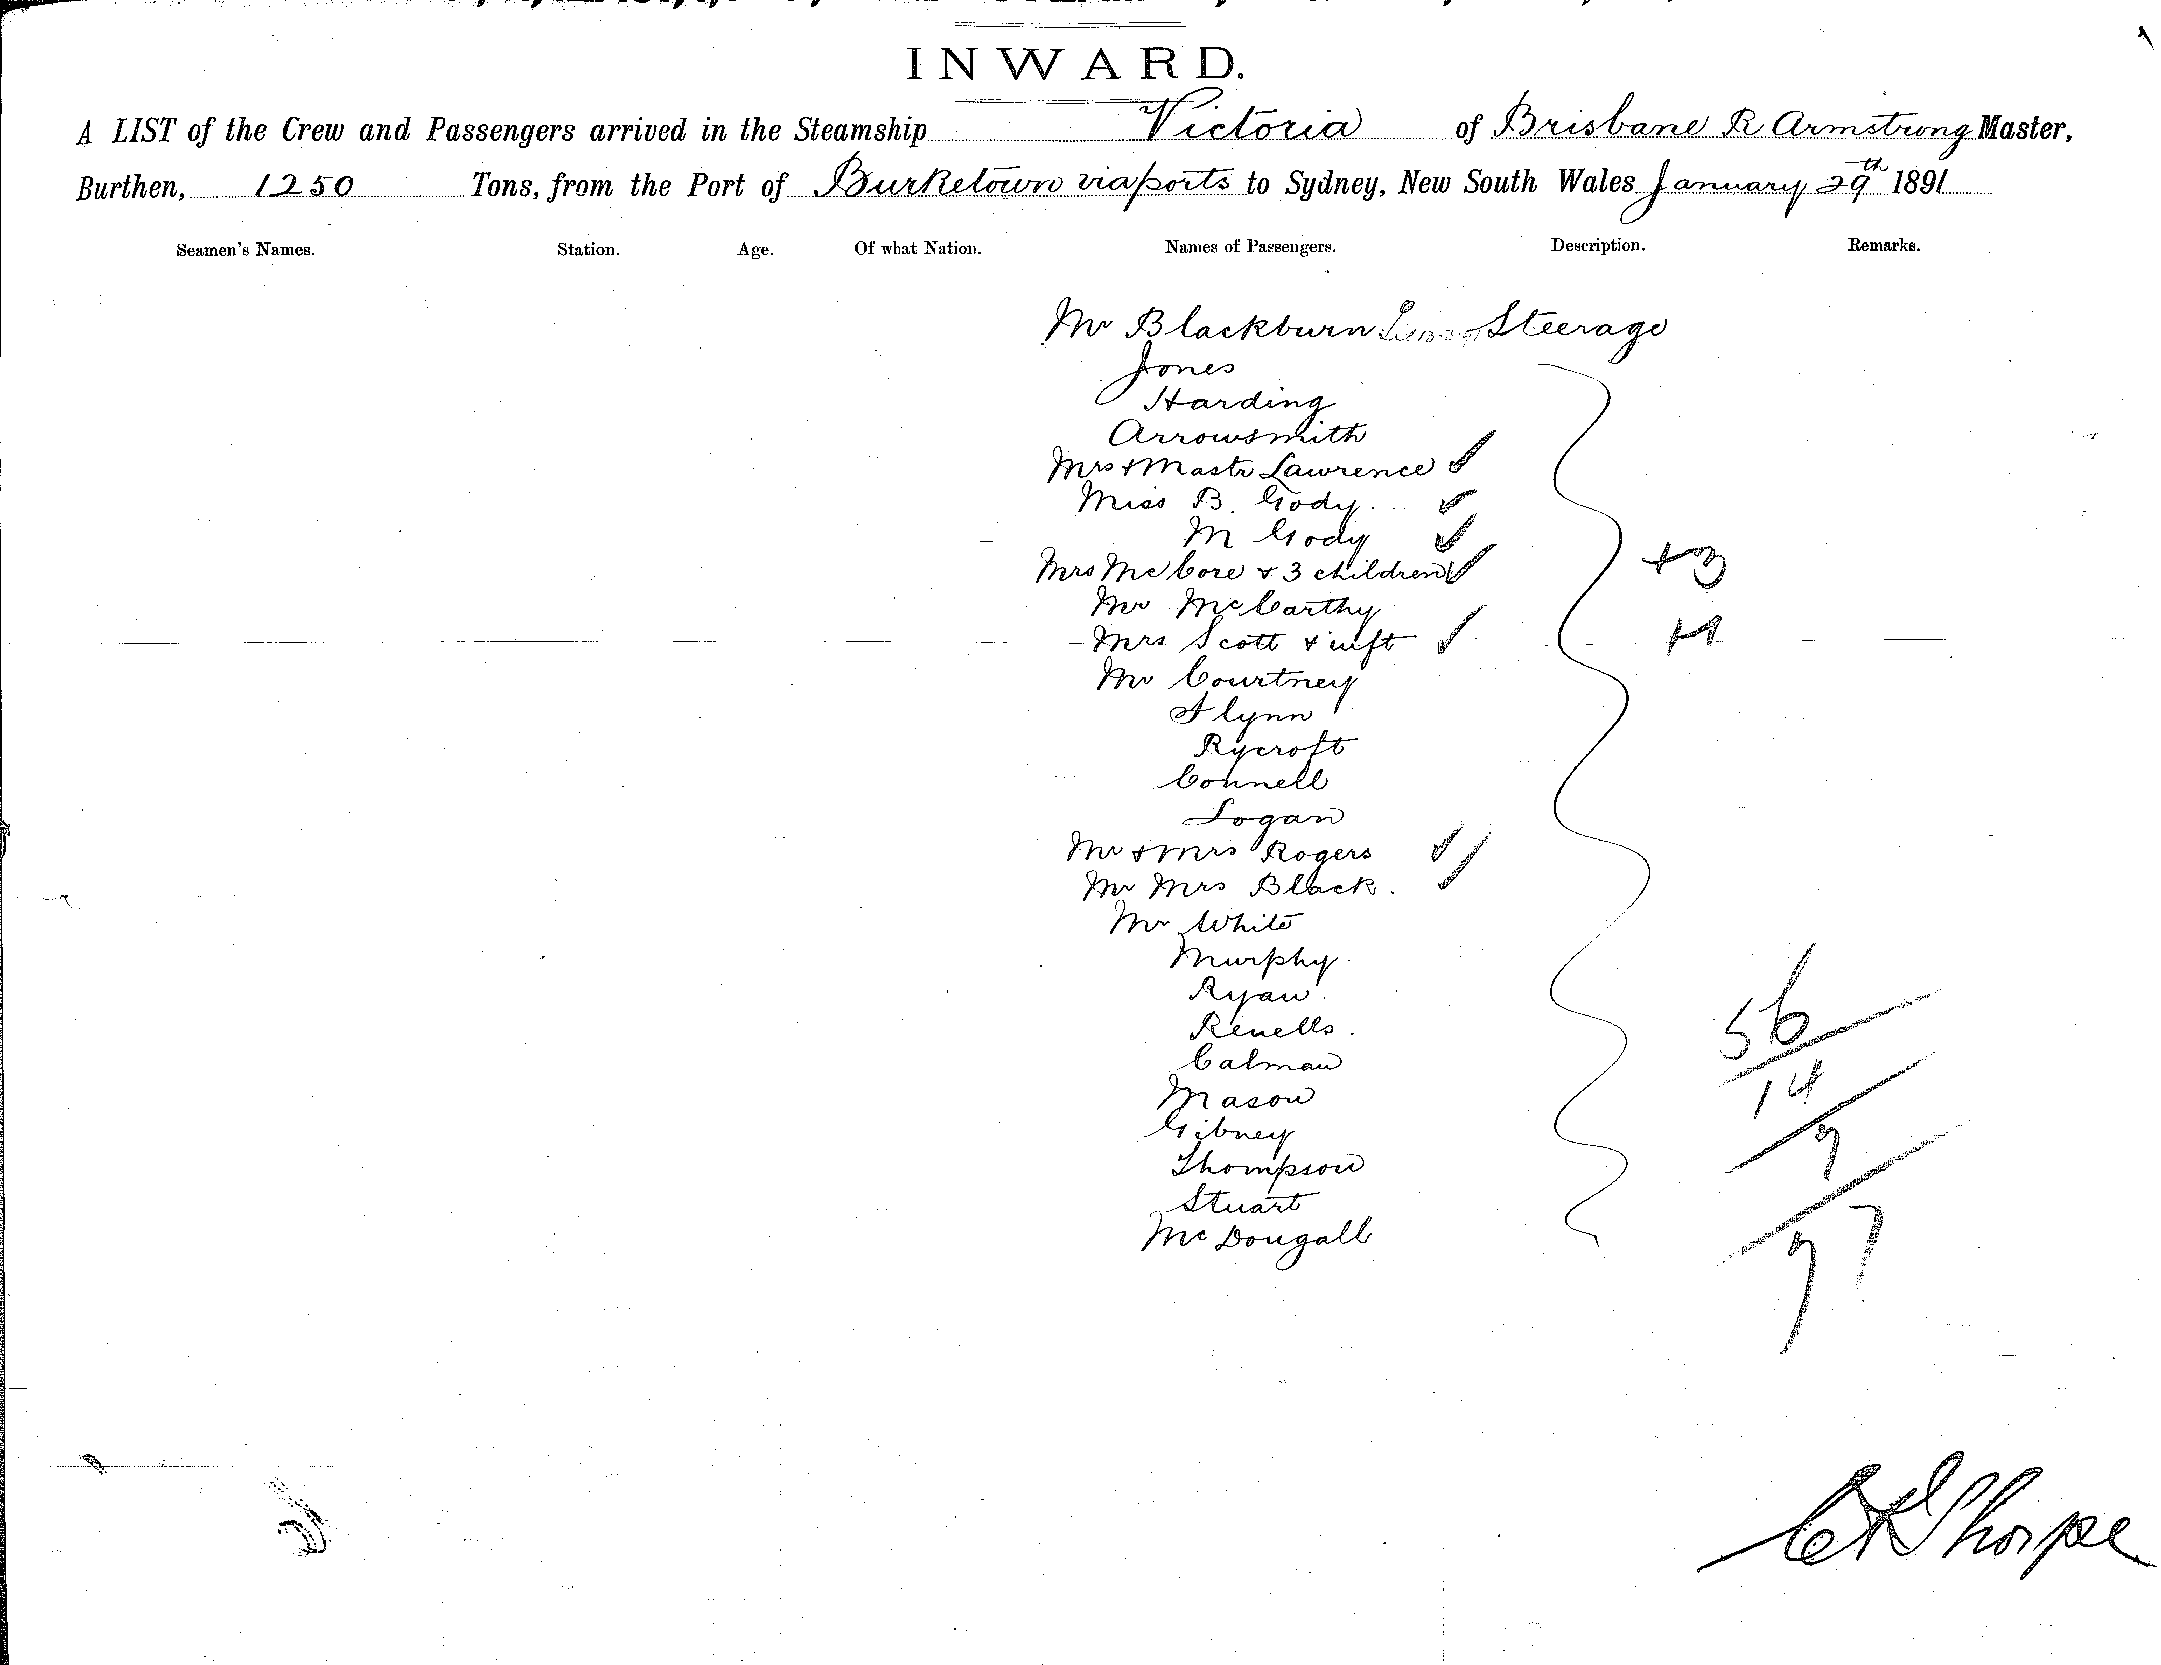 INWARD.
A LIST of the Crew and Passengers arrived in the Steamship Victoria of Brisbane R Armstrong Master,
Burthen, 1250 Tons, from the Port of Burketown via ports to Sydney, New South Wales January 29th 1891
Seamen's Names. Station. Age. Of what Nation. Names of Passengers. Description. Remarks.
Mr Blackburn Steerage
Jones
Harding
Arrowsmith
Mrs & Mastr Lawrence
Miss B. Gody
M Gody
Mrs McCore & 3 children
+3
Mr McCarthy
Mrs Scott & inft
+1
Mr Courtney
Flynn
Rycroft
Connell
Logan
Mr & Mrs Rogers
Mr Mrs Black.
Mr White
Murphy
Ryan
Renells
Calman
Mason
Gibney
Thompson
Stuart
McDougall
56
14
7
77
Thorpe